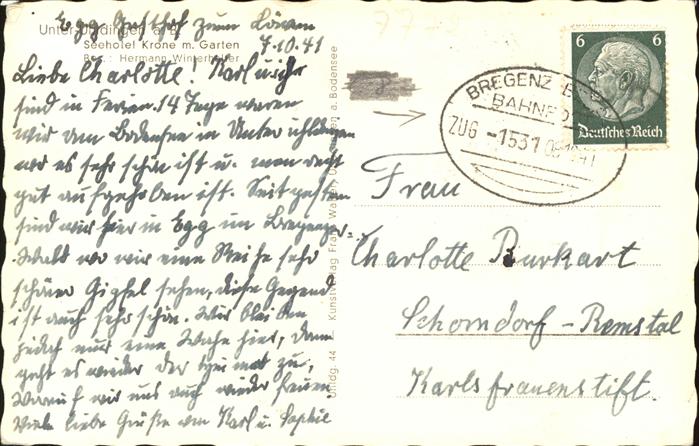 Egg Gasthof zum Löwen
7.10.41
Unter-Uhldingen a. B.
Seehotel Krone m. Garten
Bes.: Hermann Winterhalter
Liebe Charlotte! Karl u. ich
sind in Ferien. 14 Tage waren
wir am Bodensee in Unteruhldingen
wo es sehr schön ist u. man recht
gut aufgehoben ist. Seit gestern
sind wir hier in Egg im Bregenzer-
Wald wo wir eine Reihe sehr
schöner Gipfel sehen, diese Gegend
ist auch sehr schön. Wir bleiben
jedoch nur eine Woche hier, dann
geht es wieder der Heimat zu,
worauf wir uns auch wieder freuen.
Viele liebe Grüße von Karl u. Sophie
Uhldg. 44 — Kunstverlag Franz a. Bodensee
6 6
Deutsches Reich
BREGENZ
BAHNPOST
ZUG 1531
Frau
Charlotte Burkart
Schorndorf - Remstal
Karlsfrauenstift.